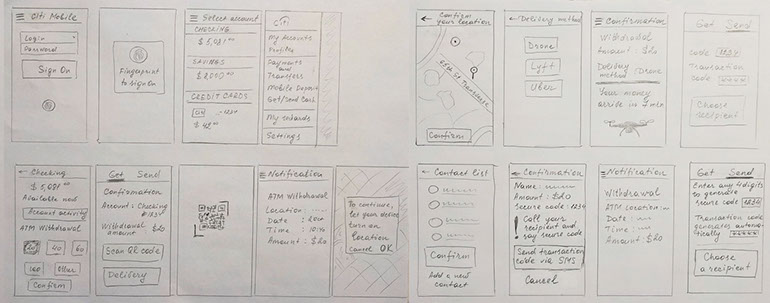 Citi Mobile
Login
Password
Sign On
Fingerprint
to sign On
Select account
CHECKING
$ 5,081
SAVINGS
CREDIT CARDS
Citi
My Accounts
Profiles
Payments
and
Transfers
Mobile Deposit
Get/Send Cash
My cards
Settings
Confirm
your location
65th St Transverse
Confirm
Delivery method
Drone
Lyft
Uber
Confirmation
Withdrawal
Amount : $20
Delivery
method : Drone
Your money
arrive in 7 min
Get Send
code 1234
Transaction
code *****
Choose
recipient
Checking
$ 5,081
Available now
Account activity
ATM Withdrawal
40 60
Other
Confirm
Get Send
Confirmation
Account : Checking
Withdrawal
amount $20
Scan QR code
Delivery
Notification
ATM Withdrawal
Location :
Date :
Time :
Amount : $20
To continue,
let your device
turn on
location
Cancel OK
Contact list
Confirm
Add a new
contact
Confirmation
Name :
Amount : $20
secure code 1234
! Call your
recipient and
say secure code
Send transaction
code via SMS
Cancel
Notification
Withdrawal
ATM Location :
Date :
Time :
Amount : $20
Get Send
Enter any 4 digits
to generate
secure code 1234
Transaction code
generates automa-
tically *****
Choose
a recipient